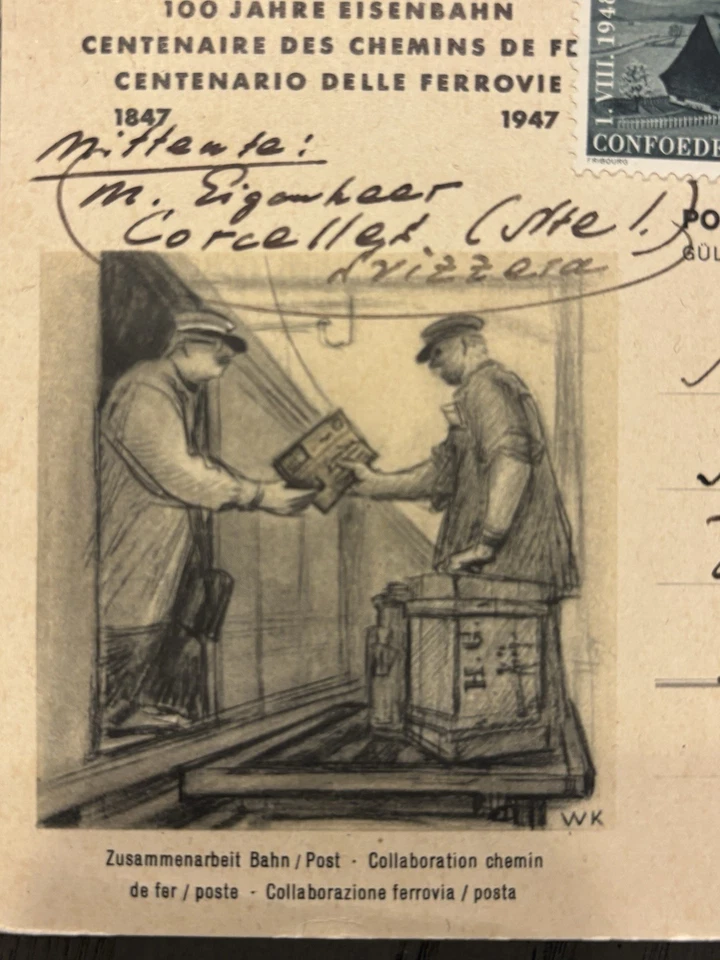 100 JAHRE EISENBAHN
CENTENAIRE DES CHEMINS DE FE
CENTENARIO DELLE FERROVIE
1847 1947
1. VIII. 1948
CONFOEDE
FRIBOURG
Mittente:
M. Eigenheer
Corcelles (Nte).
Svizzera
PO
GÜL
H.G.
WK
Zusammenarbeit Bahn / Post - Collaboration chemin
de fer / poste - Collaborazione ferrovia / posta